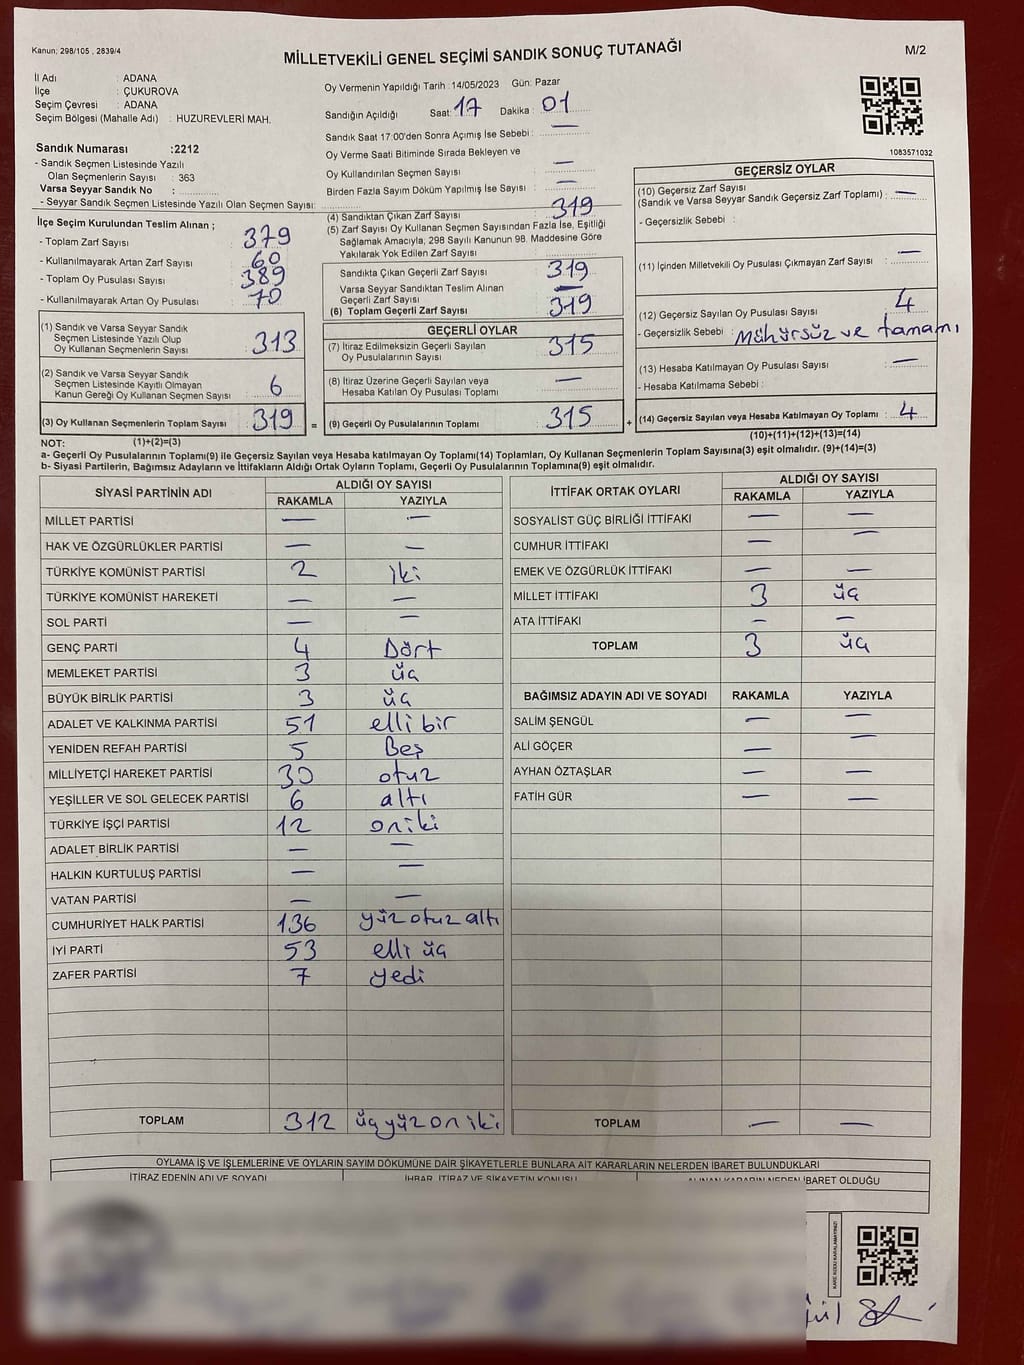 Kanun; 298/105 , 2839/4
MİLLETVEKİLİ GENEL SEÇİMİ SANDIK SONUÇ TUTANAĞI
M/2
İl Adı : ADANA
İlçe : ÇUKUROVA
Seçim Çevresi : ADANA
Seçim Bölgesi (Mahalle Adı) : HUZUREVLERİ MAH.
Oy Vermenin Yapıldığı Tarih : 14/05/2023 Gün: Pazar
Sandığın Açıldığı Saat : 17 Dakika : 01
Sandık Saat 17:00'den Sonra Açımış İse Sebebi : —
Oy Verme Saati Bitiminde Sırada Bekleyen ve
Oy Kullandırılan Seçmen Sayısı : —
Birden Fazla Sayım Döküm Yapılmış İse Sayısı : —
1083571032
Sandık Numarası :2212
- Sandık Seçmen Listesinde Yazılı
Olan Seçmenlerin Sayısı : 363
Varsa Seyyar Sandık No :
- Seyyar Sandık Seçmen Listesinde Yazılı Olan Seçmen Sayısı:
İlçe Seçim Kurulundan Teslim Alınan ;
- Toplam Zarf Sayısı : 379
- Kullanılmayarak Artan Zarf Sayısı : 60
- Toplam Oy Pusulası Sayısı : 389
- Kullanılmayarak Artan Oy Pusulası : 70
(1) Sandık ve Varsa Seyyar Sandık
Seçmen Listesinde Yazılı Olup
Oy Kullanan Seçmenlerin Sayısı : 313
(2) Sandık ve Varsa Seyyar Sandık
Seçmen Listesinde Kayıtlı Olmayan
Kanun Gereği Oy Kullanan Seçmen Sayısı : 6
(3) Oy Kullanan Seçmenlerin Toplam Sayısı : 319
(1)+(2)=(3)
(4) Sandıktan Çıkan Zarf Sayısı : 319
(5) Zarf Sayısı Oy Kullanan Seçmen Sayısından Fazla İse, Eşitliği
Sağlamak Amacıyla, 298 Sayılı Kanunun 98. Maddesine Göre
Yakılarak Yok Edilen Zarf Sayısı :
Sandıkta Çıkan Geçerli Zarf Sayısı : 319
Varsa Seyyar Sandıktan Teslim Alınan
Geçerli Zarf Sayısı : —
(6) Toplam Geçerli Zarf Sayısı : 319
GEÇERLİ OYLAR
(7) İtiraz Edilmeksizin Geçerli Sayılan
Oy Pusulalarının Sayısı : 315
(8) İtiraz Üzerine Geçerli Sayılan veya
Hesaba Katılan Oy Pusulası Toplamı : —
= (9) Geçerli Oy Pusulalarının Toplamı : 315
GEÇERSİZ OYLAR
(10) Geçersiz Zarf Sayısı
(Sandık ve Varsa Seyyar Sandık Geçersiz Zarf Toplamı) : —
- Geçersizlik Sebebi :
(11) İçinden Milletvekili Oy Pusulası Çıkmayan Zarf Sayısı : —
(12) Geçersiz Sayılan Oy Pusulası Sayısı : 4
- Geçersizlik Sebebi : Mühürsüz ve tamamı
(13) Hesaba Katılmayan Oy Pusulası Sayısı : —
- Hesaba Katılmama Sebebi :
+ (14) Geçersiz Sayılan veya Hesaba Katılmayan Oy Toplamı : 4
(10)+(11)+(12)+(13)=(14)
NOT:
a- Geçerli Oy Pusulalarının Toplamı(9) ile Geçersiz Sayılan veya Hesaba katılmayan Oy Toplamı(14) Toplamları, Oy Kullanan Seçmenlerin Toplam Sayısına(3) eşit olmalıdır. (9)+(14)=(3)
b- Siyasi Partilerin, Bağımsız Adayların ve İttifakların Aldığı Ortak Oyların Toplamı, Geçerli Oy Pusulalarının Toplamına(9) eşit olmalıdır.
SİYASİ PARTİNİN ADI ALDIĞI OY SAYISI
RAKAMLA YAZIYLA
MİLLET PARTİSİ — —
HAK VE ÖZGÜRLÜKLER PARTİSİ — —
TÜRKİYE KOMÜNİST PARTİSİ 2 iki
TÜRKİYE KOMÜNİST HAREKETİ — —
SOL PARTİ — —
GENÇ PARTİ 4 Dört
MEMLEKET PARTİSİ 3 üç
BÜYÜK BİRLİK PARTİSİ 3 üç
ADALET VE KALKINMA PARTİSİ 51 elli bir
YENİDEN REFAH PARTİSİ 5 Beş
MİLLİYETÇİ HAREKET PARTİSİ 30 otuz
YEŞİLLER VE SOL GELECEK PARTİSİ 6 altı
TÜRKİYE İŞÇİ PARTİSİ 12 oniki
ADALET BİRLİK PARTİSİ — —
HALKIN KURTULUŞ PARTİSİ — —
VATAN PARTİSİ — —
CUMHURİYET HALK PARTİSİ 136 yüz otuz altı
İYİ PARTİ 53 elli üç
ZAFER PARTİSİ 7 yedi
TOPLAM 312 üçyüz on iki
İTTİFAK ORTAK OYLARI ALDIĞI OY SAYISI
RAKAMLA YAZIYLA
SOSYALİST GÜÇ BİRLİĞİ İTTİFAKI — —
CUMHUR İTTİFAKI — —
EMEK VE ÖZGÜRLÜK İTTİFAKI — —
MİLLET İTTİFAKI 3 üç
ATA İTTİFAKI — —
TOPLAM 3 üç
BAĞIMSIZ ADAYIN ADI VE SOYADI RAKAMLA YAZIYLA
SALİM ŞENGÜL — —
ALİ GÖÇER — —
AYHAN ÖZTAŞLAR — —
FATİH GÜR — —
TOPLAM — —
OYLAMA İŞ VE İŞLEMLERİNE VE OYLARIN SAYIM DÖKÜMÜNE DAİR ŞİKAYETLERLE BUNLARA AİT KARARLARIN NELERDEN İBARET BULUNDUKLARI
İTİRAZ EDENİN ADI VE SOYADI İHBAR, İTİRAZ VE ŞİKAYETİN KONUSU ALINAN KARARIN NEDEN İBARET OLDUĞU
KARE KODU KARALAMAYINIZ!